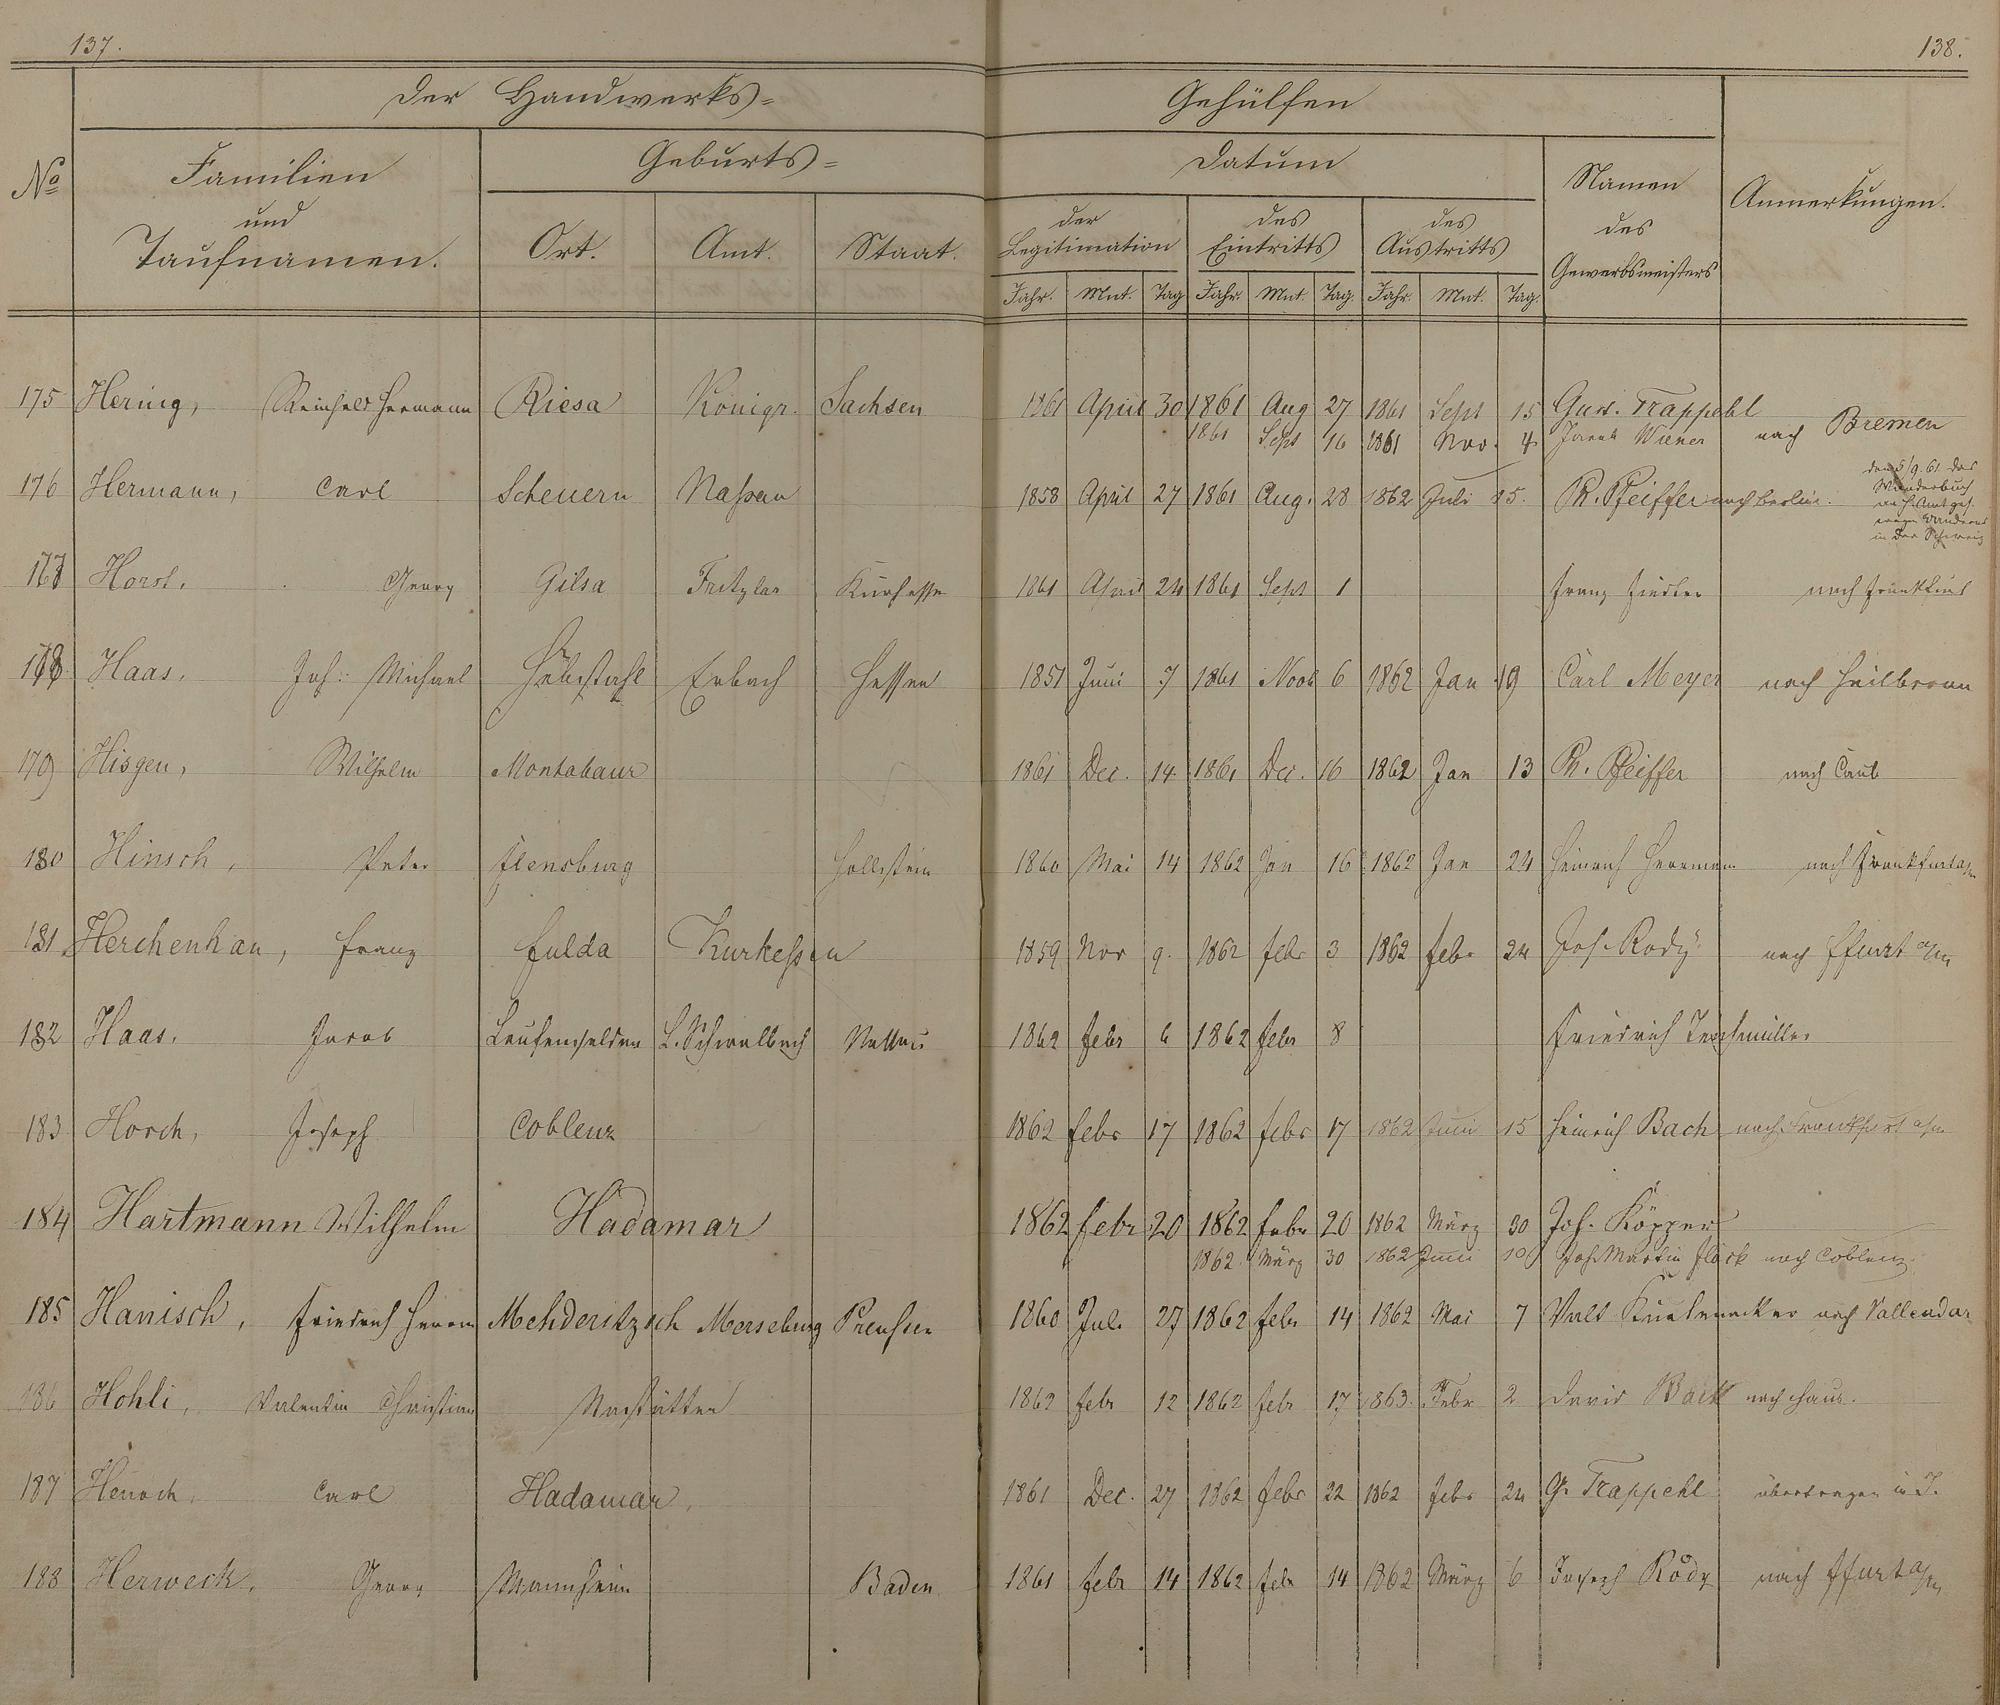 137.
138.
Der Handwerks=
Gehülfen
No
Familien
und
Taufnamen.
Geburts=
Ort.
Amt.
Staat.
Datum
der
Legitimation
des
Eintritts
des
Austritts
Jahr. Mnt. Tag Jahr. Mnt. Tag. Jahr. Mnt. Tag.
Namen
des
Gewerbsmeisters
Anmerkungen.
175 Hering, Reinhold Hermann Riesa Königr. Sachsen 1861 April 30 1861 Aug 27 1861 Sept 15 Gust. Trappehl
1861 Sept 16 1861 Nov. 4 Jacob Wiener nach Bremen
176 Hermann, Carl Scheuern Nassau 1858 April 27 1861 Aug. 28 1862 Juli 25. Ph. Pfeiffer nach Berlin.
den 5/9. 61 das
Wanderbuch
an h. Amt ges.
wegen Wanderns
in der Schweiz
177 Horst, Georg Gilsa Fritzlar Kurhessen 1861 April 24 1861 Sept 1 Franz nach Frankfurt
178 Haas, Joh: Michael Erbach Hessen 1851 Juni 7 1861 Novb 6 1862 Jan 19 Carl Meyer nach Heilbronn
179 Hisgen, Wilhelm Montabaur 1861 Dec. 14 1861 Dec. 16 1862 Jan 13 Ph. Pfeiffer nach Caub
180 Hinsch, Peter Flensburg Hollstein 1860 Mai 14 1862 Jan 16 1862 Jan 24 Heinrich Herrmann nach Frankfurt a/m
181 Herchenhan, Franz Fulda Kurhessen 1859 Nov 9. 1862 febr 3 1862 febr 24 Jos. Rody nach ffurt a/m
182 Haas, Jacob Laufenselden L. Schwalbach Nassau 1862 febr 6 1862 febr 8 Friedrich Teichmüller
183 Horch, Joseph Coblenz 1862 febr 17 1862 febr 17 1862 Juni 15 Heinrich Bach nach Frankfurt a/m
184 Hartmann Wilhelm Hadamar 1862 febr 20 1862 febr 20 1862 März 30 Joh. Köpper
1862 März 30 1862 Juni 10 Joh. Martin Flöck nach Coblenz.
185 Hanisch, Friedrich Herm Mehderitzsch Merseburg Preussen 1860 Juli 27 1862 febr 14 1862 Mai 7 nach Vallendar
186 Hohli, Valentin Christian Nastätten 1862 febr 12 1862 febr 17 1863. Febr 2 David Back nach Haus.
187 Henoch, Carl Hadamar, 1861 Dec. 27 1862 febr 22 1862 febr 24 G. Trappehl übertragen in J.
188 Herweck, Georg Mannheim Baden 1861 febr 14 1862 febr 14 1862 März 6 Joseph Rody nach ffurt a/m